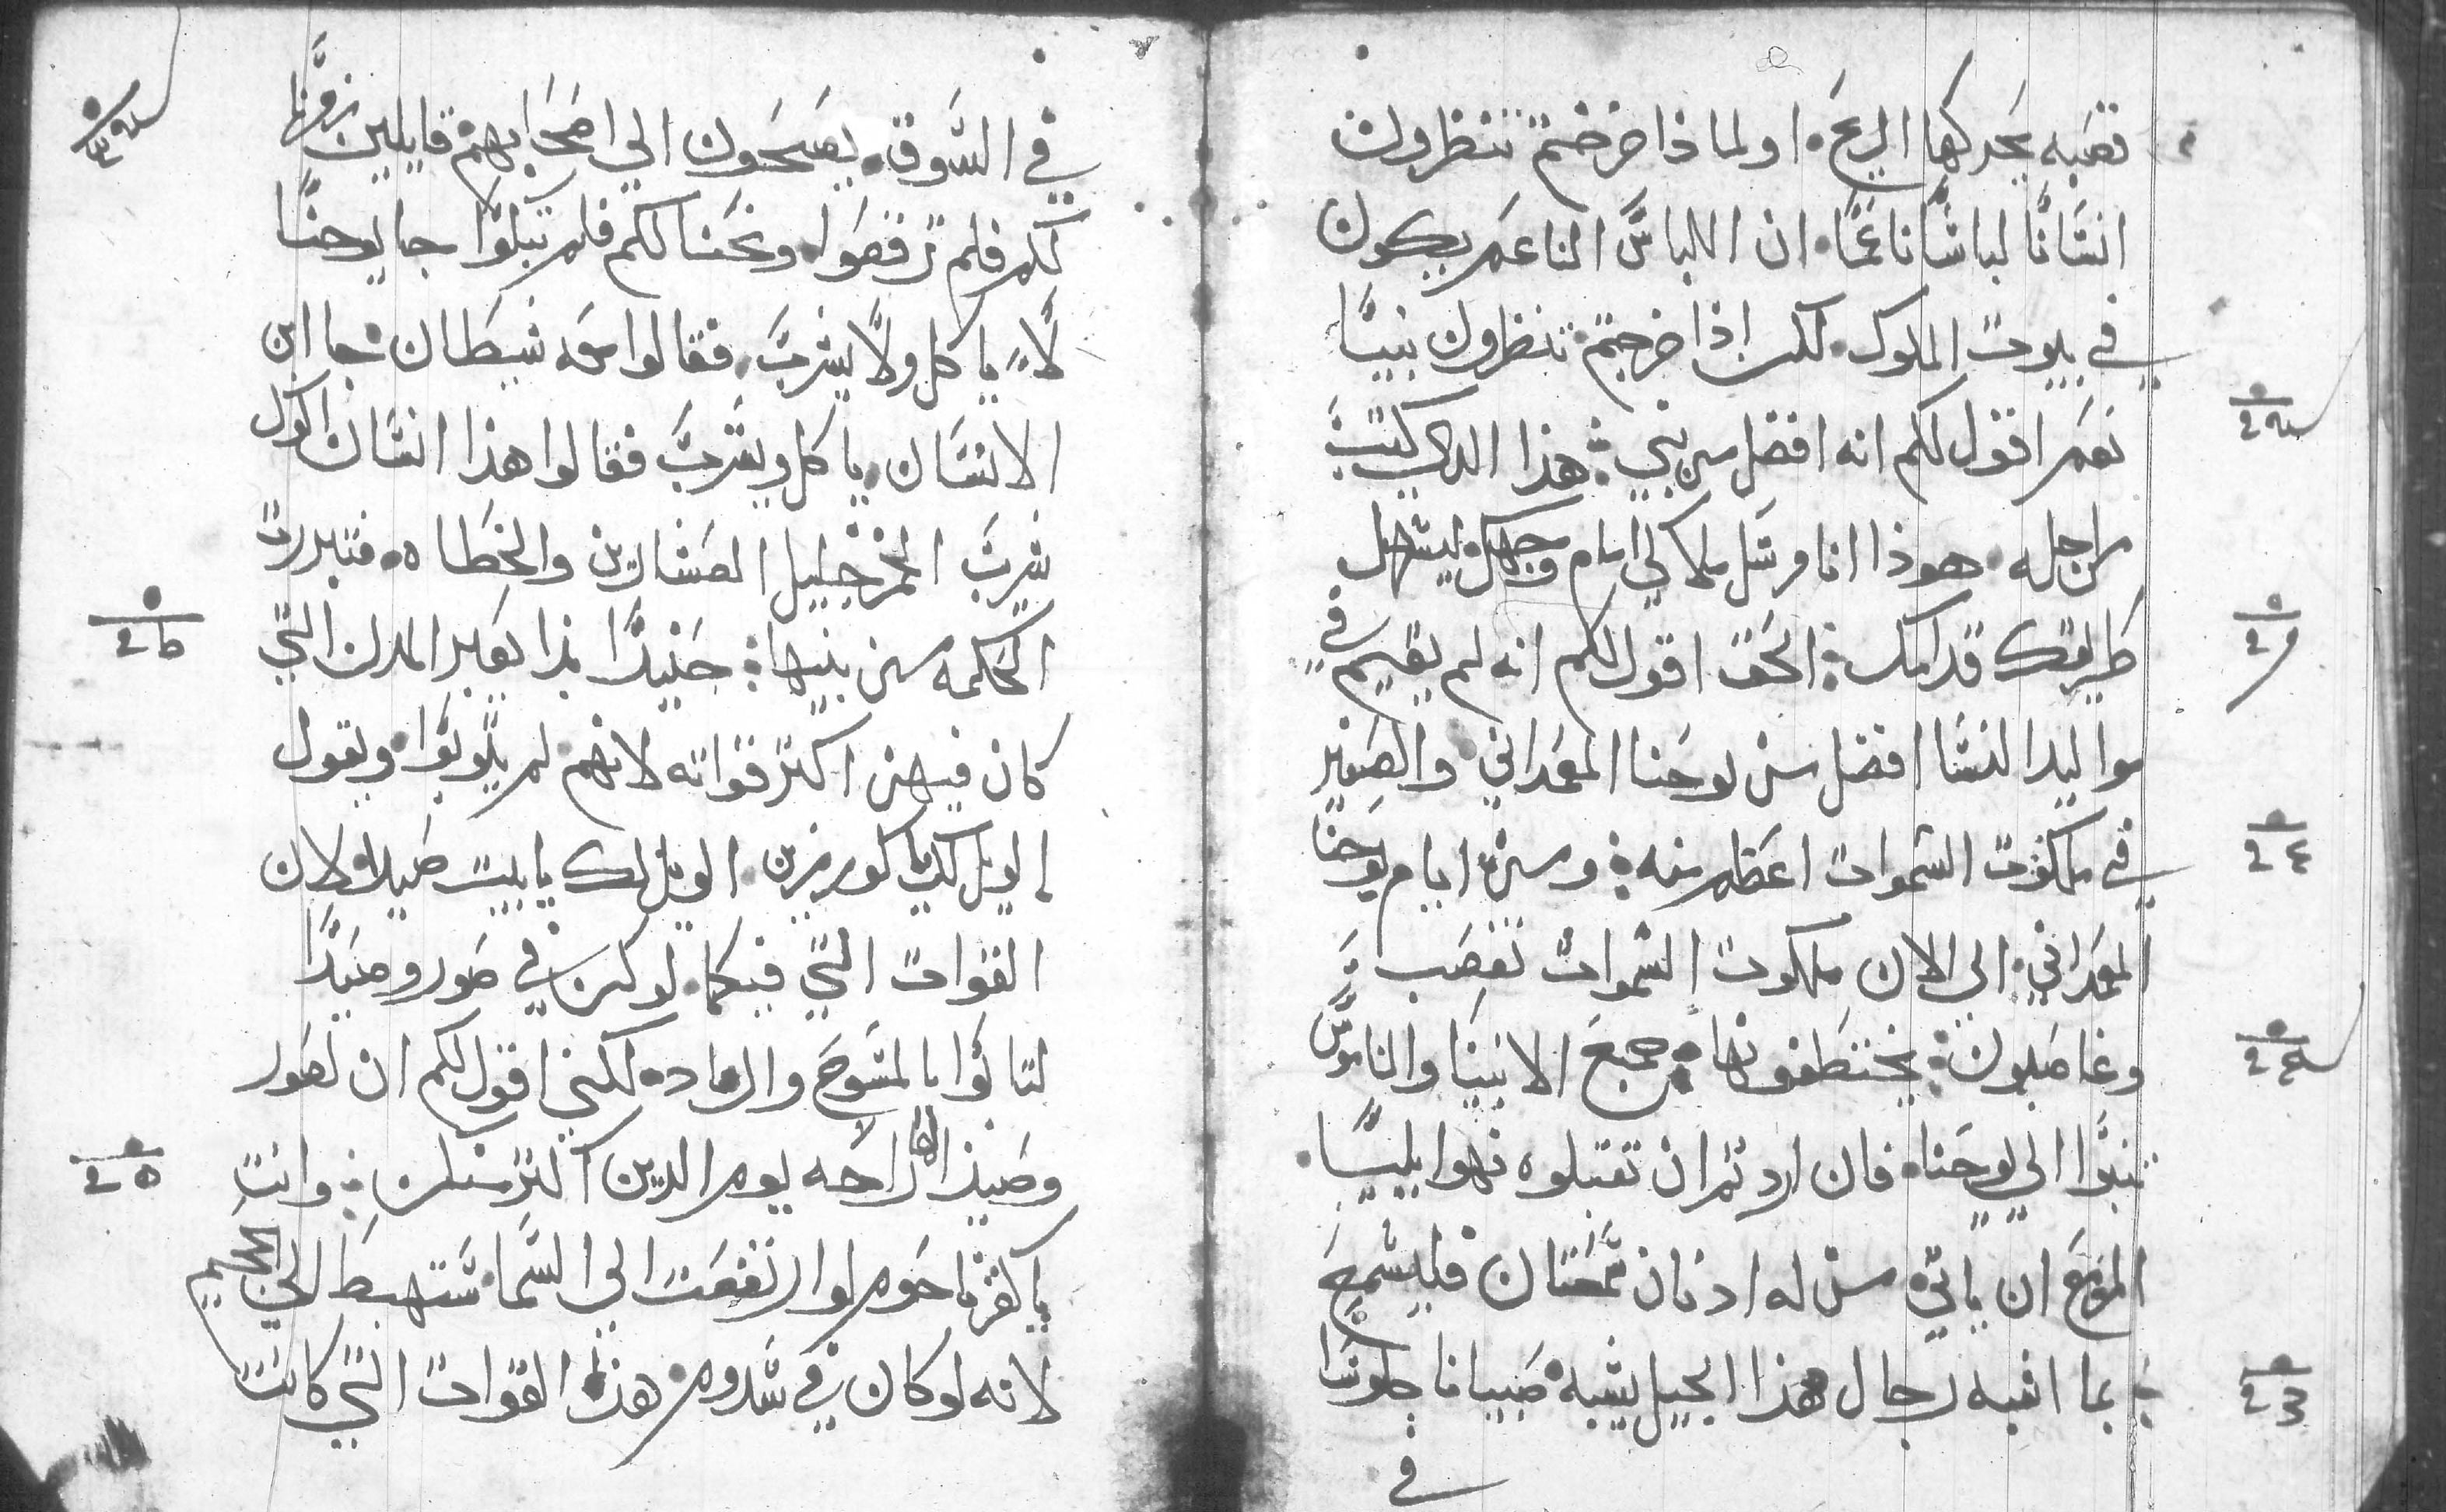 قصبه يحركها الريح. او لماذا خرجتم تنظرون
انسانا لباسا ناعما. ان اللباس الناعم يكون
في بيوت الملوك. لكن اذا خرجتم تنظرون نبيا
نعم اقول لكم انه افضل من نبي. هذا الدي كتب
من اجله. هوذا انا مرسل ملاكي امام وجهك ليسهل
طريقك قدامك: الحق اقول لكم انه لم يقيم في
مواليد النسا افضل من يوحنا المعمداني والصغير
في ملكوت السموات اعظم منه: ومن ايام يوحنا
المعمداني. الي الان ملكوت السموات تغصب
وغاصبون: يختطفونها: جميع الانبيا والناموس
تنبوا الي يوحنا. فان اردتم ان تقبلوه فهو ايليا.
المزمع ان ياتي من له ادنان سمعتان فليسمع
بما اشبه رجال هذا الجيل يشبه صبيانا جلوسا
في
في السوق. يصيحون الي اصحابهم قايلين زمرنا
لكم فلم ترقصوا. ونحنا لكم فلم تبكوا جا يوحنا
لا ياكل ولا يشرب. فقالوا معه شيطان. جا ابن
الانسان. ياكل ويشرب فقالوا هذا انسان اكول
شريب الخمر خليل العشارين والخطاه. فتبررت
الحكمه من بنيها: حنيدا بدا يعير المدن التي
كان فيهن اكتر قواته لانهم لم يتوبوا. ويقول
الويل لك يا كورزين. الويل لك يا بيت صيدا. لان
القوات التي فيكما. لو كن في صور وصيدا
لتابوا بالمسوح والرماد. لكني اقول لكم ان لصور
وصيدا لها راحه يوم الدين اكتر منكن: وانت
يا كفرناحوم لو ارتفعت الي السما. ستهبط الي الجحيم
لانه لو كان في سدوم. هذه القوات التي كانت